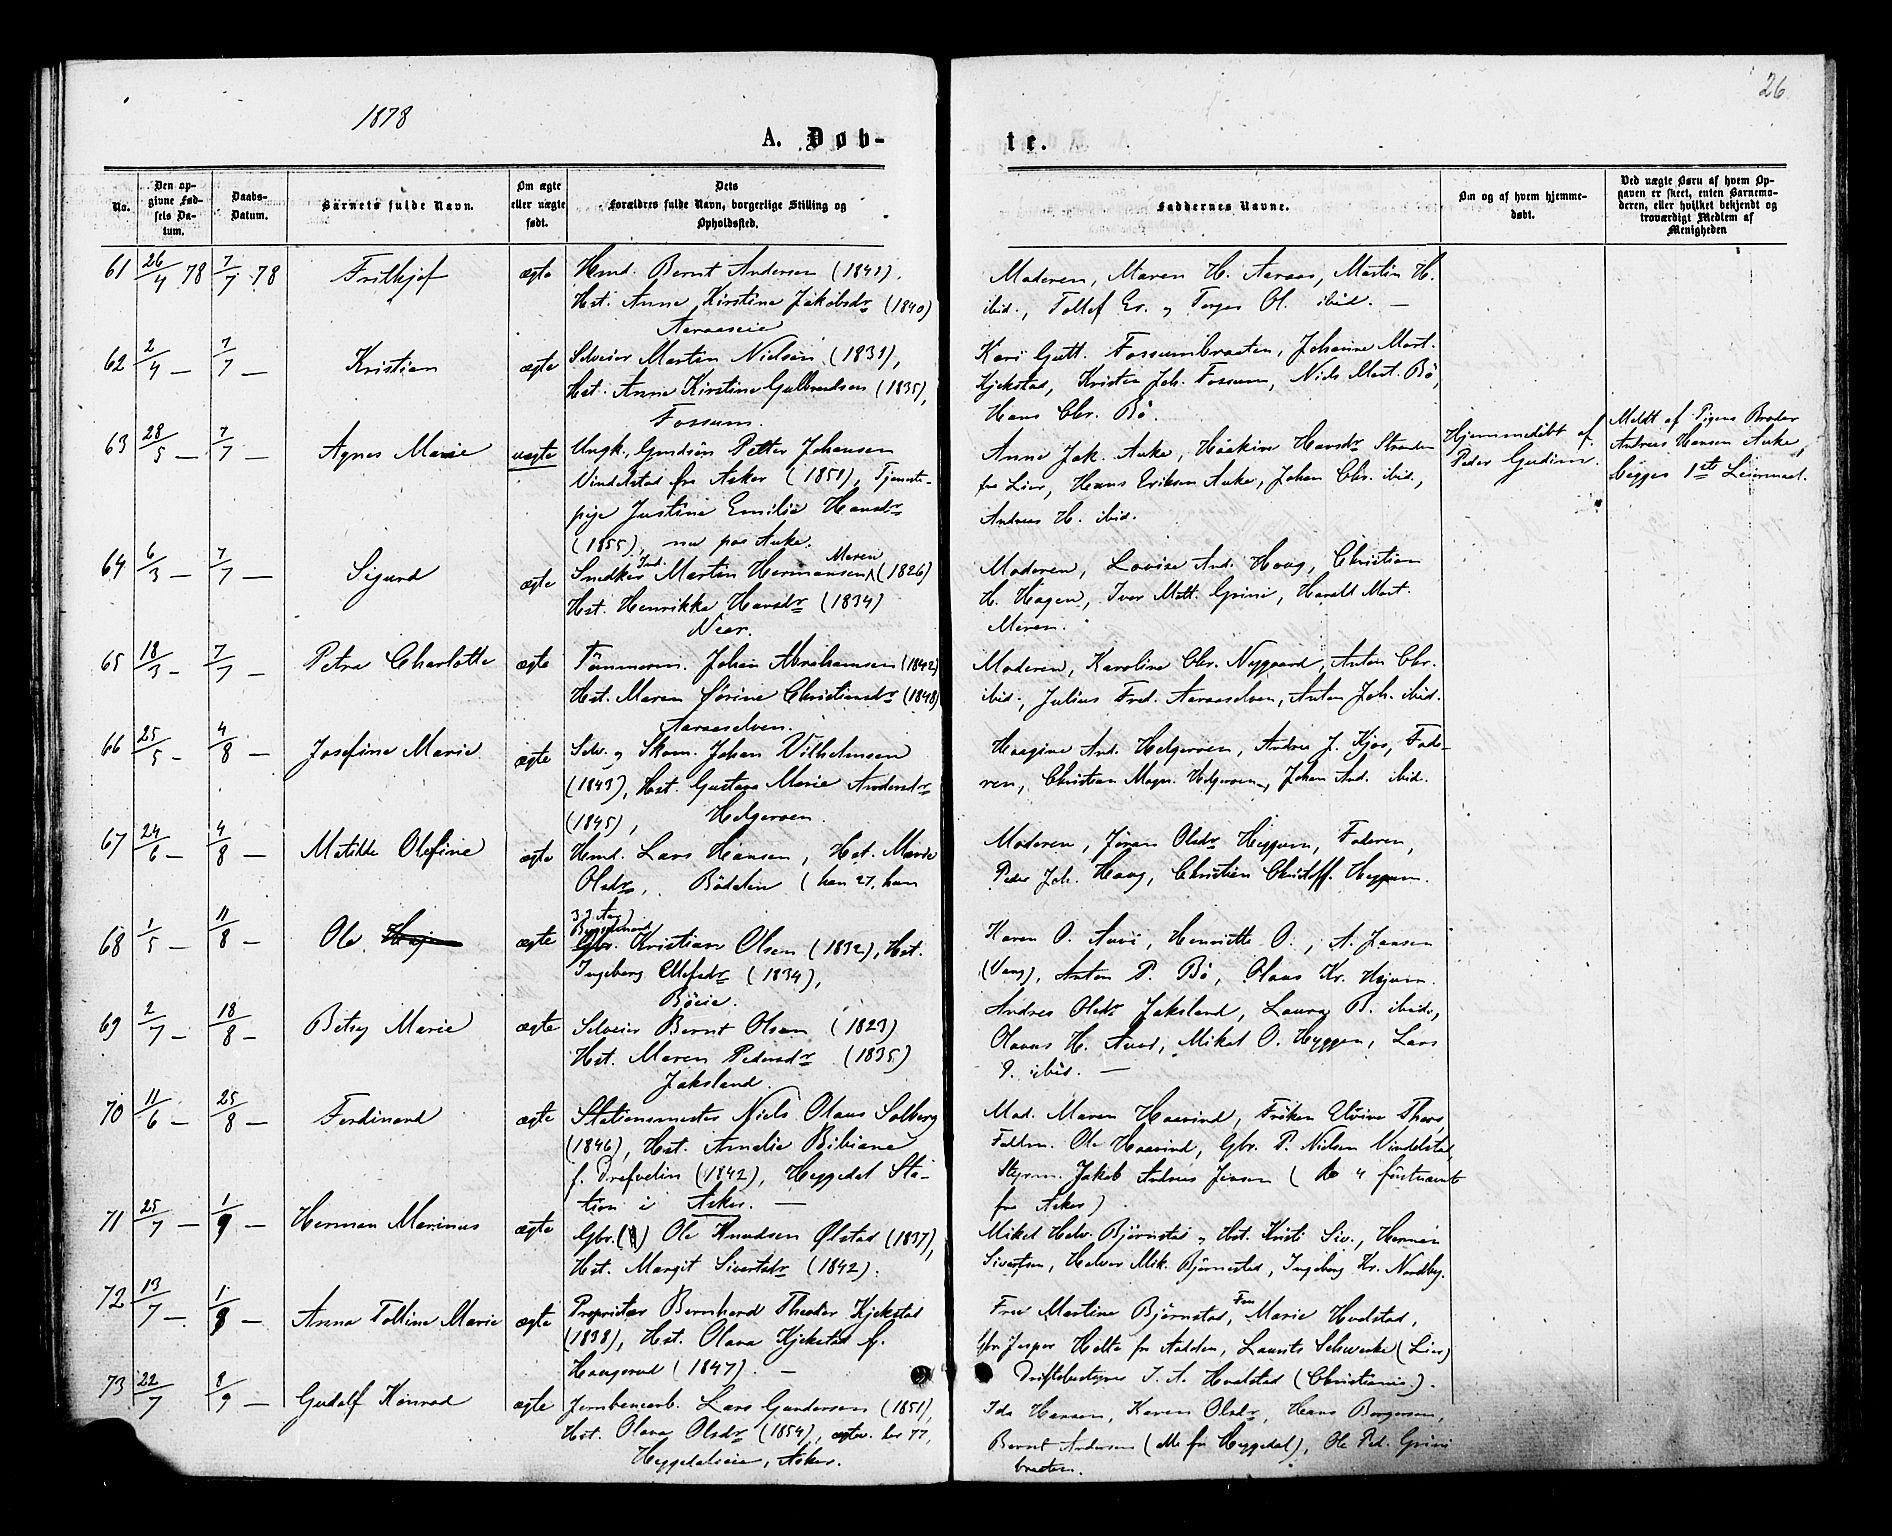 1878
26
A. Døb-
te.
No.
Den op-
givne Fød-
sels Da-
tum.
Daabs-
Datum.
Barnets fulde Navn.
Om ægte
eller uægte
født.
Dets
Forældres fulde Navn, borgerlige Stilling og
Opholdssted.
Faddernes Navne.
Om og af hvem hjemme-
døbt.
Ved uægte Børn af hvem Op-
gaven er skeet, enten Barnemo-
deren, eller hvilket bekjendt og
troværdigt Medlem af
Menigheden
61 26/4 78 7/7 78 Frithjof ægte Hmd. Bernt Andersen (1841),
Hst. Anne Kirstine Jakobsdr (1840)
Aaraaseie
Moderen, Maren H. Aaraas, Martin H.
ibid., Tollef Er. og Torger Ol. ibid. —
62 2/4 — 7/7 — Kristian ægte Selveier Martin Nielsen (1831),
Hst. Anne Kirstine Gulbrandsen (1835),
Fossum.
Kari Gutt. Fossumbraaten, Johanne Mart.
Kjekstad, Kristen Joh. Fossum, Niels Mart. Bö,
Hans Chr. Bö.
63 28/5 — 7/7 — Agnes Marie uægte Ungk., Gmdsön Petter Johansen
Vindelstad fra Asker (1851), Tjeneste-
pige Justine Emilie Hansdr
(1855), nu paa Auke.
Anne Jak. Auke, Haakine Hansdr Stranden
fra Lier, Hans Eriksen Auke, Johan Chr. ibid.,
Andreas H. ibid.
Hjemmedöbt af
Peder Gudim.
Meldt af Pigens Broder
Andreas Hansen Auke,
begges 1ste Leiermaal.
64 6/3 — 7/7 — Sigurd ægte Snedker Ind. Martin Hermansen Meren (1826)
Hst. Henrikke Hansdr (1834)
Nær.
Moderen, Lovise And. Hoag, Christian
H. Hagen, Iver Matt. Grini, Harald Mart.
Meren.
65 18/3 — 7/7 — Petra Charlotte ægte Tömmerm. Johan Abrahamsen (1842)
Hst. Maren Sörine Christiansdr (1848)
Aaraaselven.
Moderen, Karoline Chr. Nygaard, Anton Chr.
ibid., Julius Fred. Aaraaselven, Anton Joh. ibid.
66 25/5 — 4/8 — Josefine Marie ægte Selv. og Skom. Johan Vilhelmsen
(1843), Hst. Gustava Marie Andersdr
(1845), Helgeroen.
And. Helgeroen, Andrea J. Kjos, Fade-
ren, Christian Magn. Helgeroen, Johan And. ibid.
67 24/6 — 4/8 — Matilde Olefine ægte Hmd. Lars Hansen, Hst. Marie
Olsdr, Böddelin (hun 27, han
33 Aar)
Moderen, Jöran Olsdr Heggum, Faderen,
Peder Joh. Haag, Christian Christoff. Heggum.
68 1/5 — 11/8 — Ole ægte Gbr. Kristian Olsen (1832), Hst.
Ingeborg Ellefsdr (1834),
Böeie.
Karen O. Auvi, Henriette O., A. Jansen
(Vang), Anton P. Bö, Olaus Kr.
69 2/7 — 18/8 — Betsy Marie ægte Selveier Bernt Olsen (1823)
Hst. Maren Pedersdr (1835)
Jaksland.
Andrea Olsdr Jaksland, Laura B. ibid.,
Olavus H. Auvi, Mikal O. Heggen, Lars
P. ibid. —
70 11/6 — 25/8 — Ferdinand ægte Stationsmester Niels Olaus Solberg
(1846), Hst. Amalie Bibiane
f. Drefvelin (1842), Heggedal Sta-
tion i Asker. —
Mad. Maren Haavind, Fröken Elvine Thore,
Ole Haavind, Gbr. P. Nielsen Vindelstad,
Styrm. Jakob Andreas Jensen (de 4 förstnævnte
fra Asker)
71 25/7 — 1/9 — Herman Marinus ægte Gbr. Ole Knudsen Ølstad (1837),
Hst. Margit Sivertsdr (1842).
Mikel Halv. Björnstad og Hst. Kristi Siv., Herman
Sivertsen, Halvor Mik. Björnestad, Ingeborg Kr. Nordby.
72 13/7 — 1/9 — Anna Tolline Marie ægte Proprietær Bernhard Theodor Kjekstad
(1838), Hst. Olava Kjekstad f.
Haugerud (1847). —
Fru Martine Björnstad, Fru Marie Hvalstad,
Jesper Holte fra Aadden, Laurits Schwenke (Lier)
Driftsbestyrer I. A. Hvalstad (Christiania).
73 22/7 8/9 — Gudolf Konrad ægte Jernbanearb. Lars Gundersen (1851),
Hst. Olava Olsdr (1854), ægtev. her 77,
Heggedalseie, Asker.
Ida Hansen, Karen Olsdr, Hans Borgersen,
Bernt Andersen (alle fra Heggedal), Ole Ped. Grini
braaten.